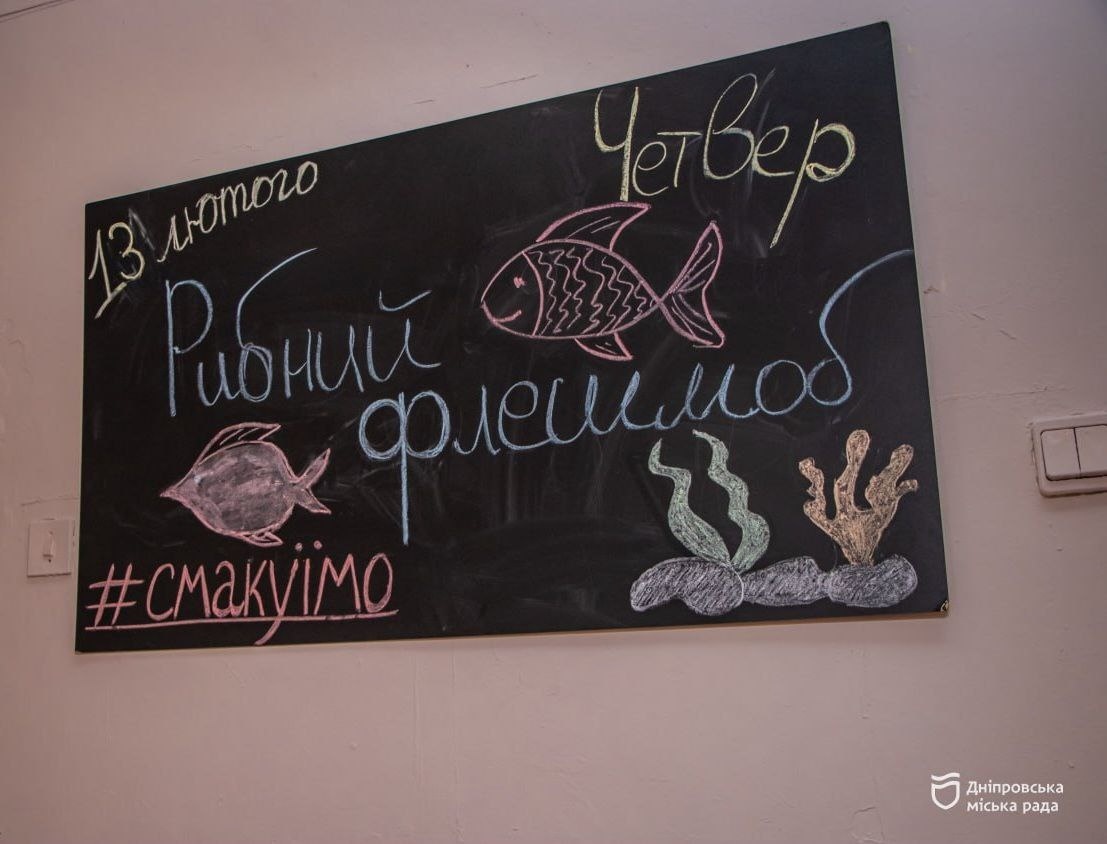 13 лютого
Четвер
Рибний
флешмоб
#смакуїмо
Дніпровська
міська рада